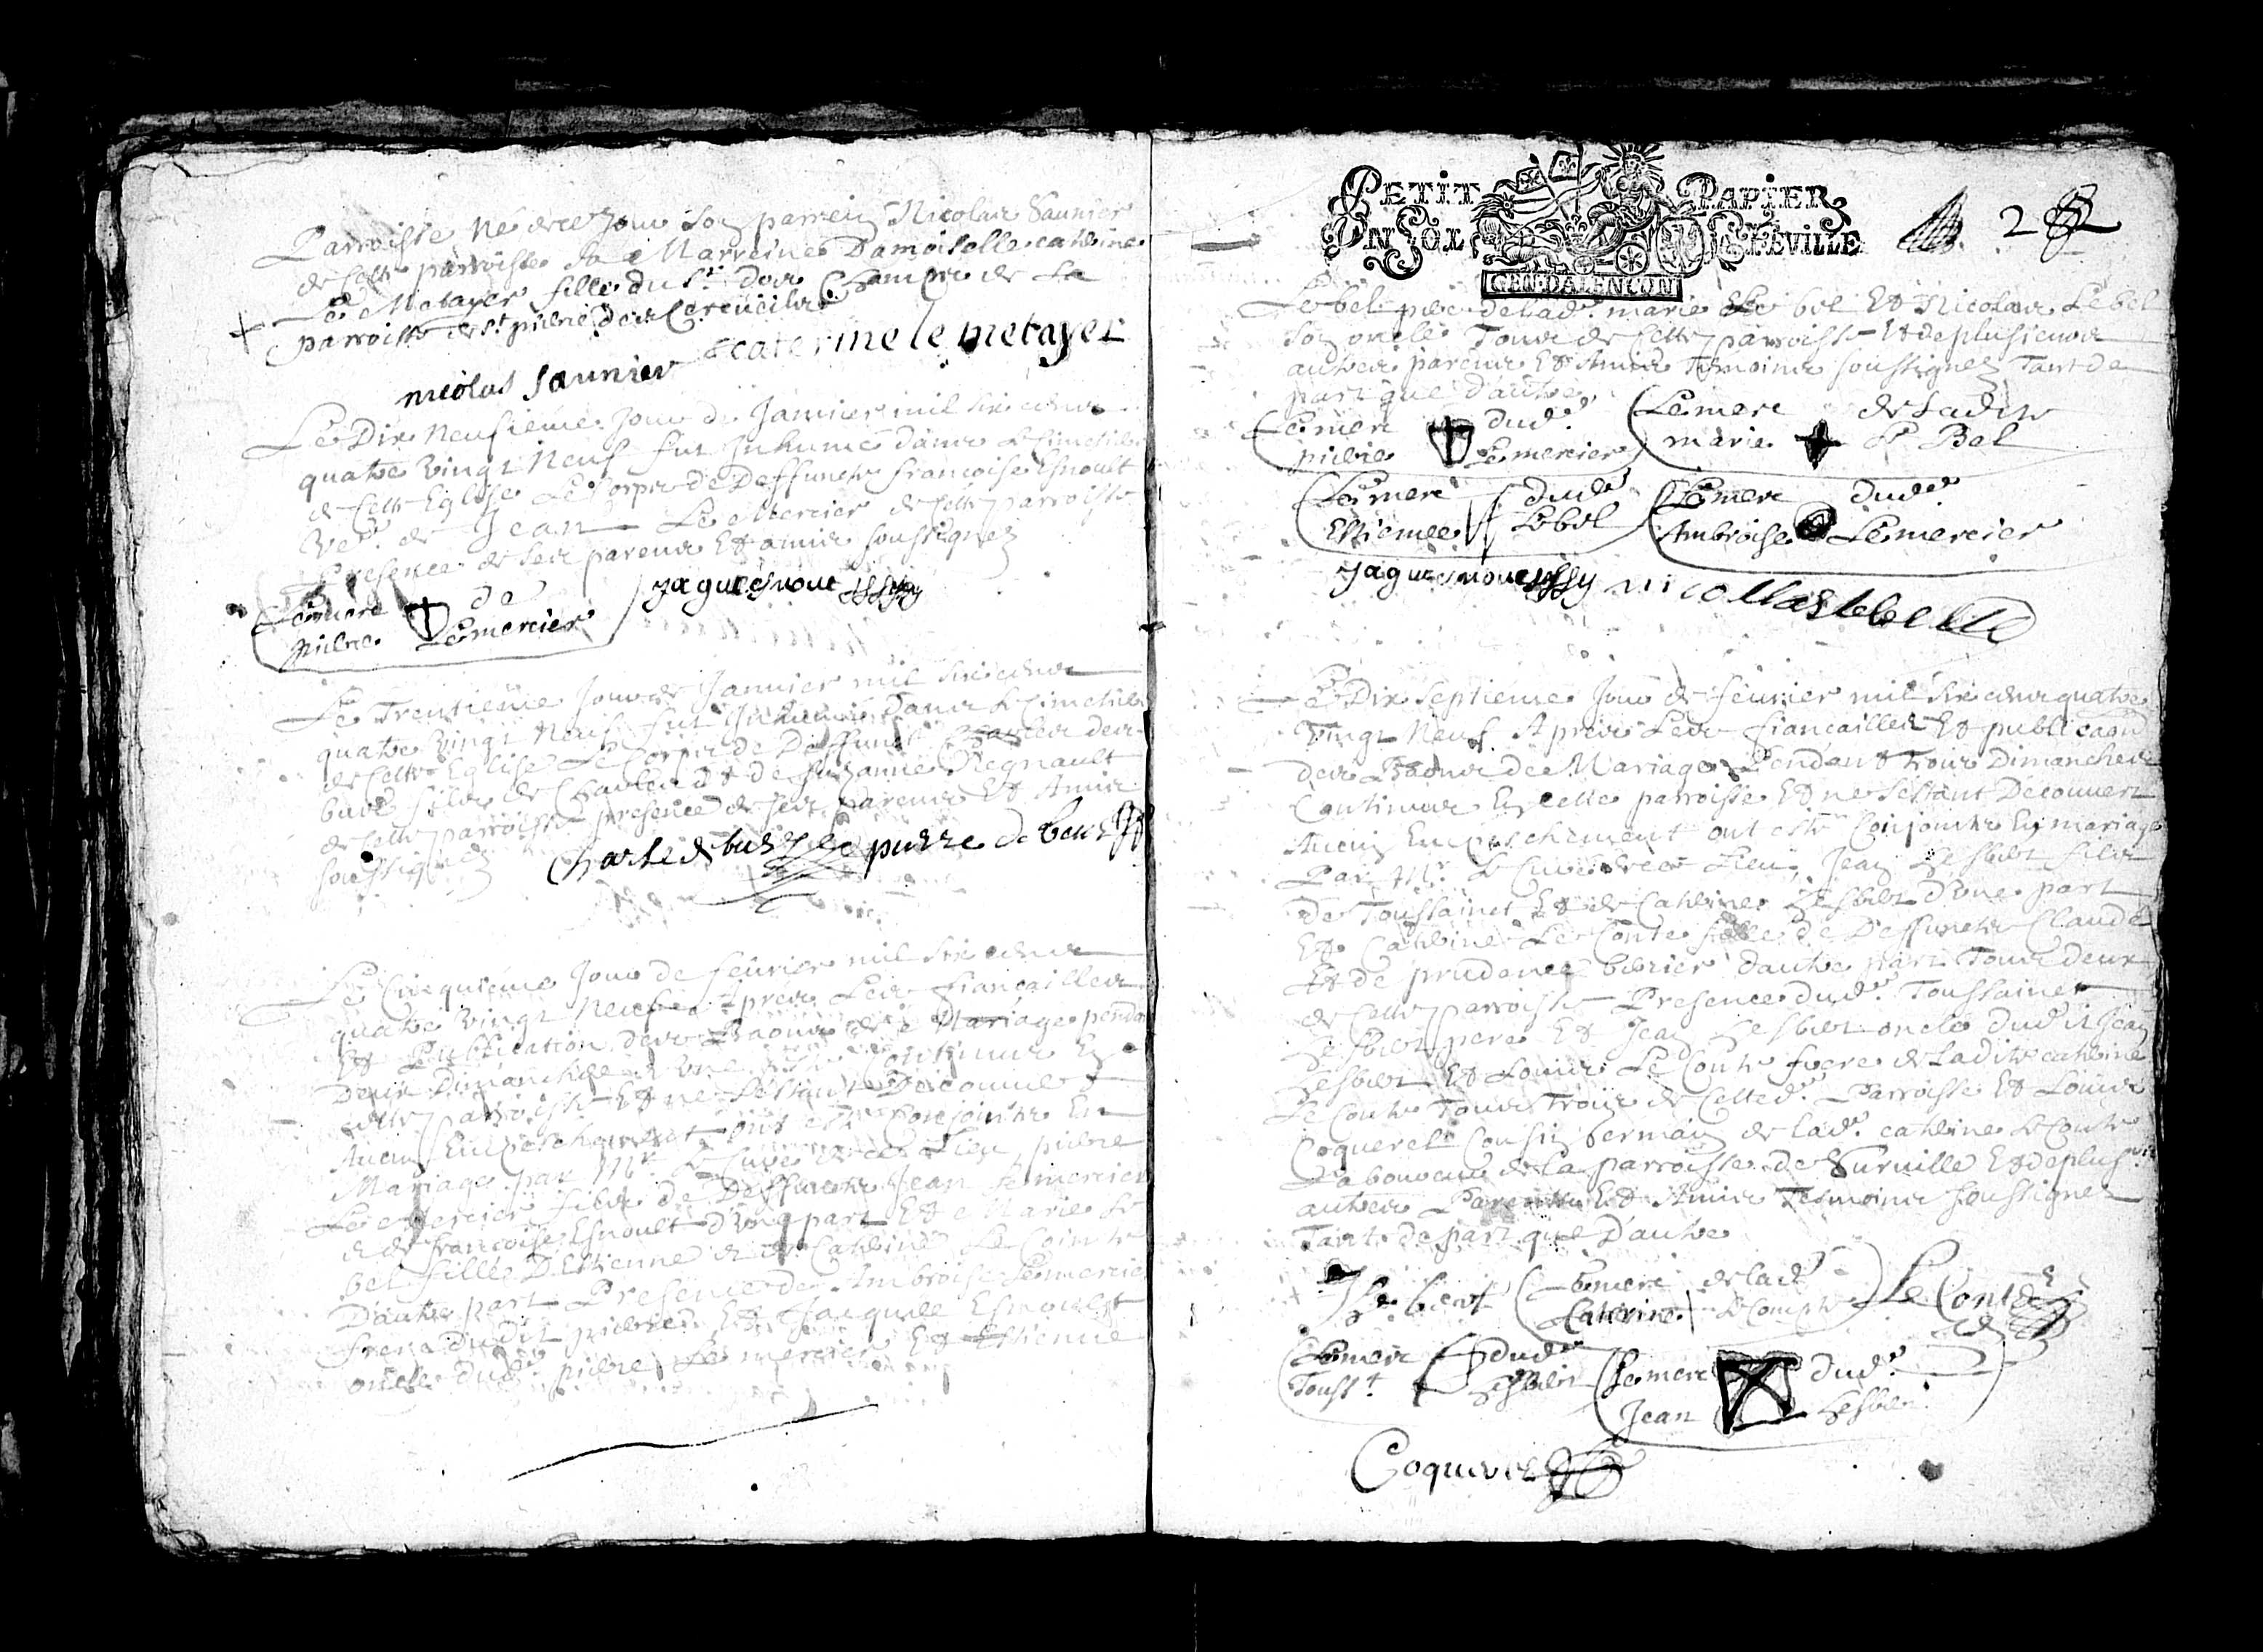 Parroisse Né de ce Jour Son parrein Nicolas Saunier
de Cette parroisse Sa Marreine Damoiselle catherine
Le Metayer fille du Sr. des Champs de La
parroisse de st pierre des Cercueils
nicolas saunier caterine le metayer
Le Dix Neufieme Jour de Janvier mil six cents
quatre Vingt Neuf fut Inhumé dans Le Cimetiere
de Cette Eglise Le Corps de Deffuncte francoise Esnoult
Ve. de Jean Le Mercier de Cette parroisse
Presence de Ses parents Et amis soussignez
Le merc de
pierre Lemercier
Jaques nout
Le Trentieme Jour de Janvier mil six cents
quatre Vingt Neuf fut Inhumé dans Le Cimetiere
de Cette Eglise Le Corps de Deffunct Charles des
bues fils de Charles Et de Suzanne Regnault
de Cette parroisse presence de Ses parents Et Amis
soussignez
Charles de bus pierre de beus
Le Cinquieme Jour de feuvrier mil six cents
quatre Vingt Neuf Apres Les fiancailles
Et Publication des Baons de Mariage penda
Deux Dimanches Continus En
cette parroisse Et ne s'estant Decouvert
Aucun Empeschement ont esté Conjoints En
Mariage par Mr. Le Curé de ce Lieu pierre
Le Mercier fils de Deffuncts Jean Le mercier
& de francoise Esnoult d'une part Et Marie Le
Bel fille D'Estienne & de Catherine Le Cointe
D'autre part Presence de Ambroise Lemercie
frere dudit pierre Et Jacques Esnoult
oncle dud. pierre Le mercier Et Estienne
PETIT PAPIER
UN SOL
GEN. DALENCON
2
Lebel pere de lad. marie Le bel Et Nicolas Lebel
Son oncle Tous de Cette parroisse Et de plusieurs
autres parents Et Amis Temoins soussignez Tant de
part que d'autre
Le merc dud.
pierre Lemercier
Le merc de Ladite
marie Le Bel
Le merc dud.
Estienne Lebel
Le merc dud.
Ambroise Lemercier
Jaques nout nicollas lebel
Le Dix Septieme Jour de feuvrier mil six cents quatre
Vingt Neuf Apres Les fiancailles Et publicaon
des Baons de Mariage Pendant Trois Dimanches
Continus En cette parroisse Et ne s'estant Decouvert
Aucun Empeschement ont esté Conjoints En mariage
Par Mr. Le Curé de ce Lieu Jean Lesbert fils
de Toussainct Et de Catherine Lesbert d'une part
Et Catherine Le Conte fille de Deffuncts Claude
Et de prudence d'autre part Tous deux
de Cette parroisse Presence dud. Toussainct
Lesbert pere Et Jean Lesbert oncle dudit Jean
Lesbert Et Louis Le Conte frere de Ladite catherine
Le Conte Tous Trois de Cetted. Parroisse Et Louis
Coquerel Cousin Germain de lad. catherine Le Conte
Laboureur de la parroisse de Surville Et de plus.
autres Parents Et Amis Tesmoins soussignez
Tant de part que D'autre
Le merc de lad.
Caterine Le Compte
Le Conte
Le merc dud.
Touss.t Lesbert
Le merc dud.
Jean Lesbert
Coquerel